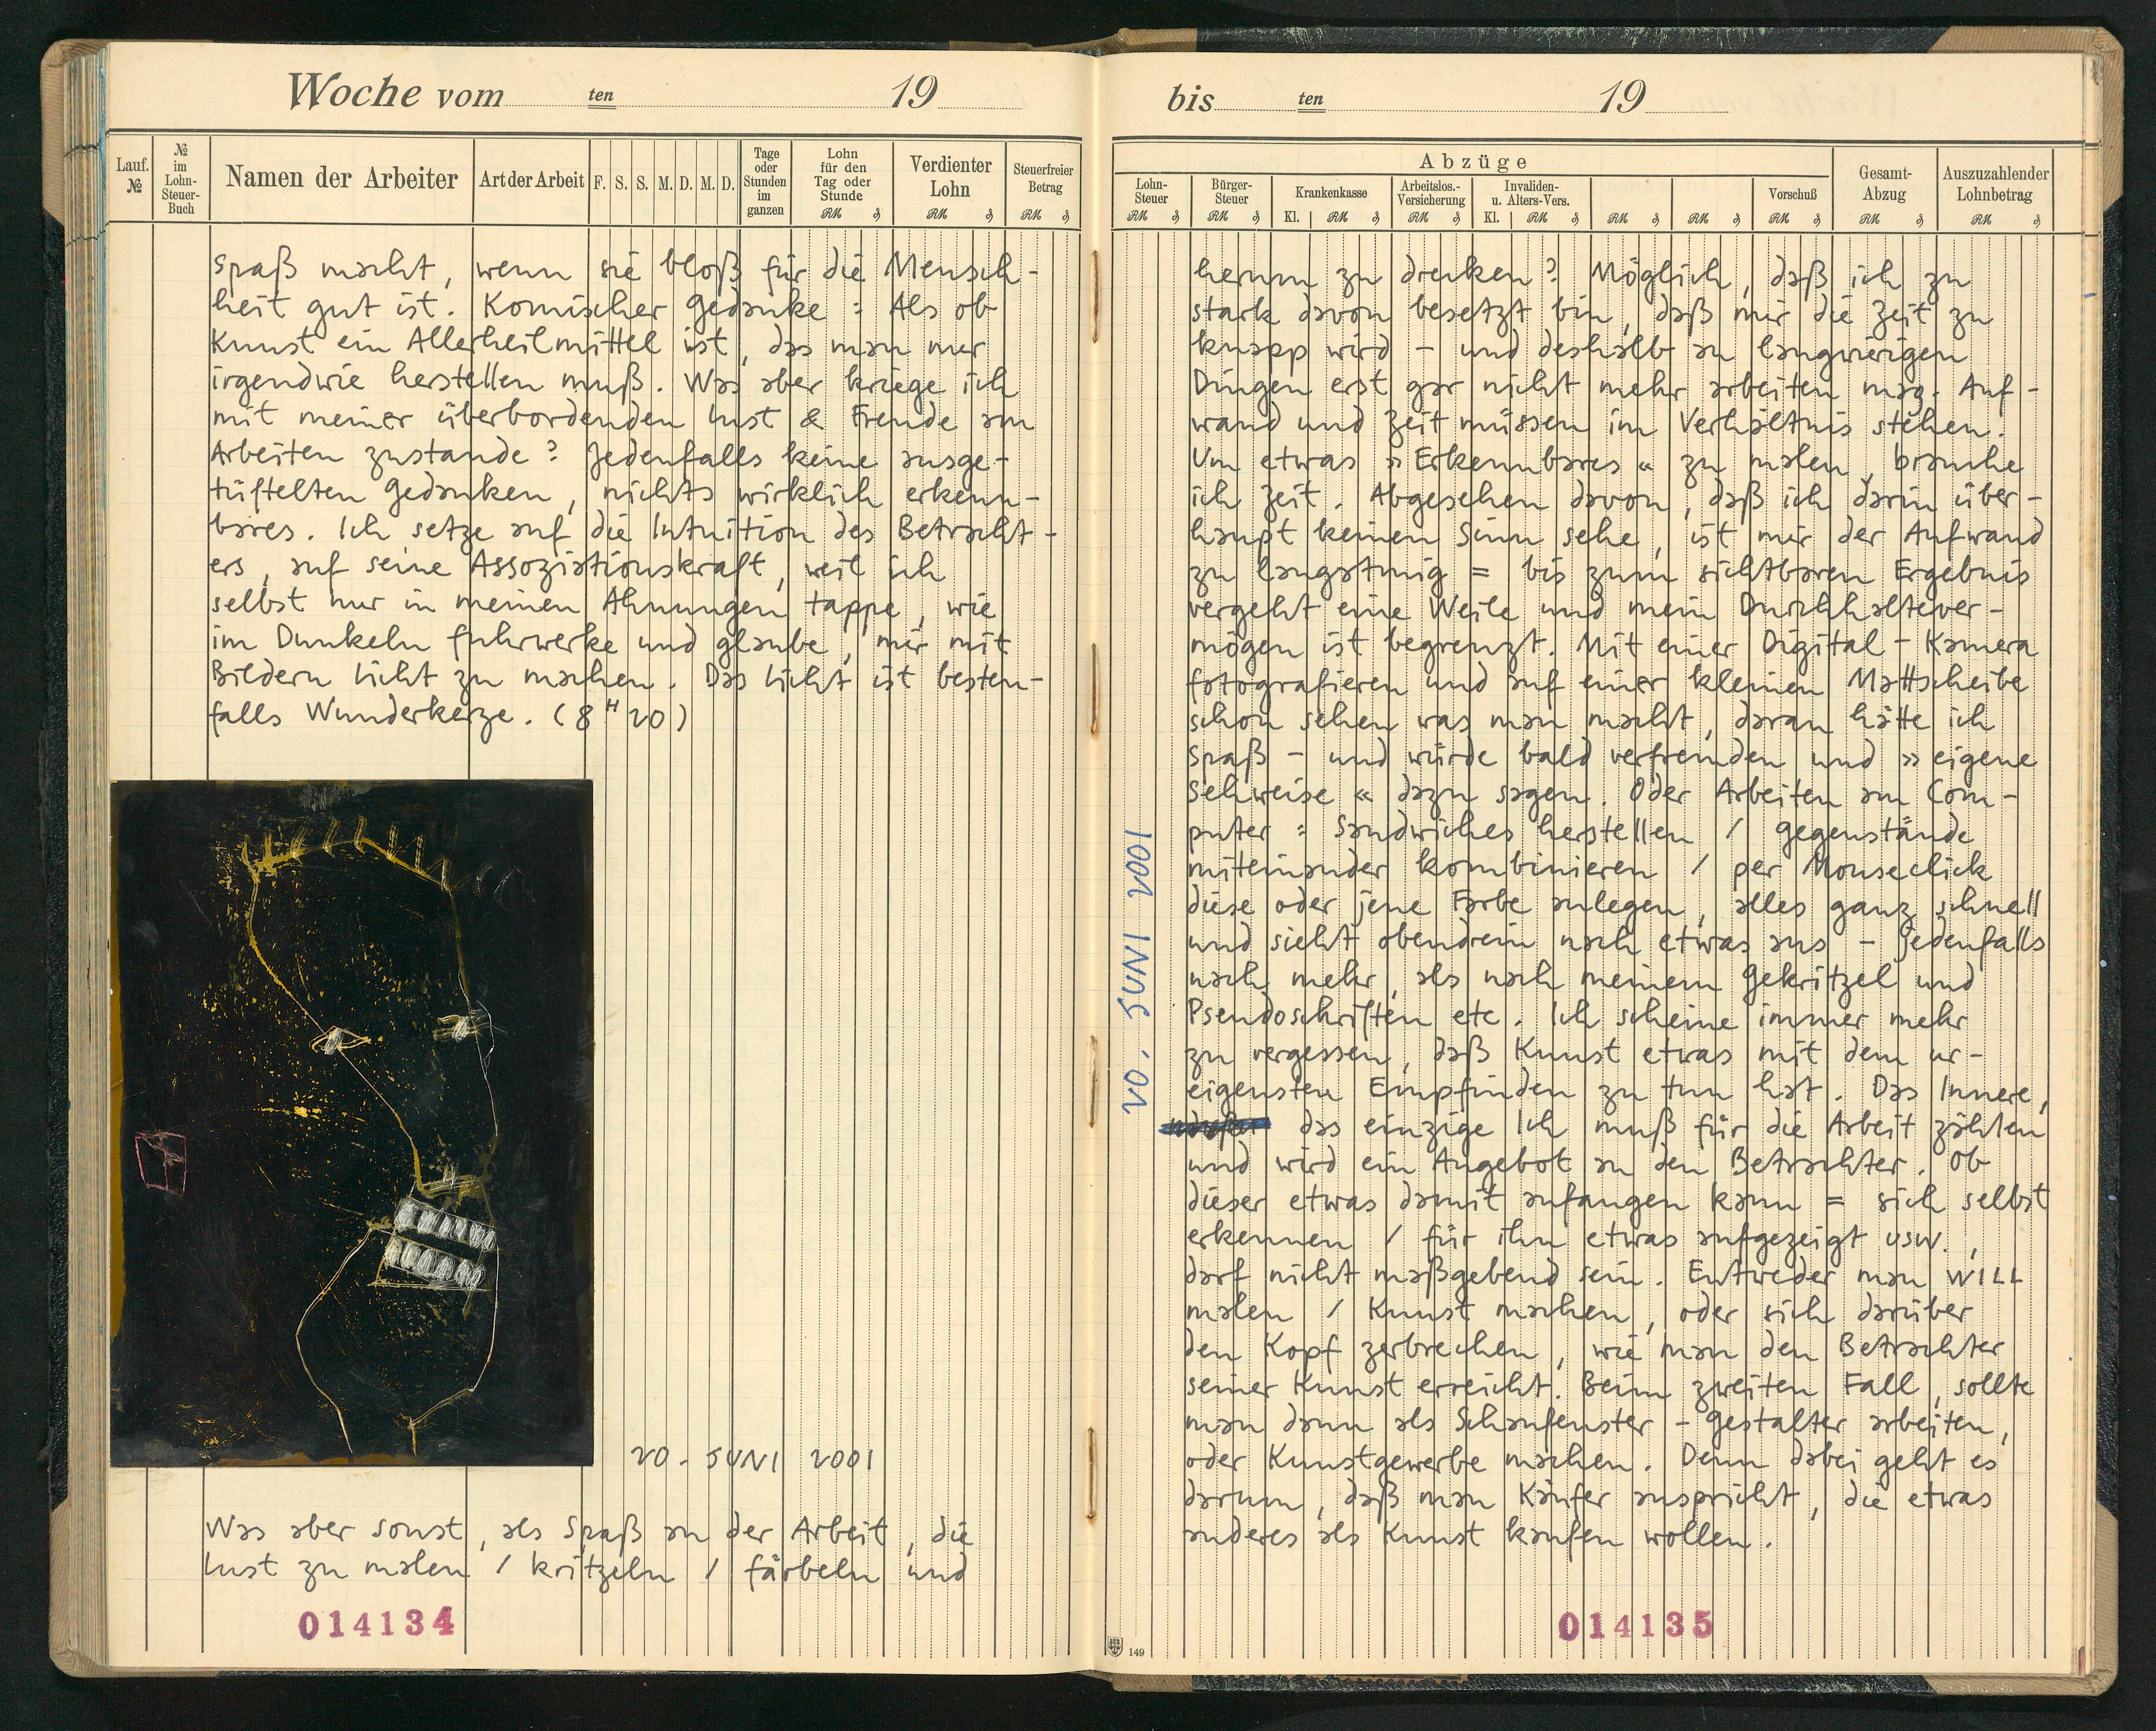 Woche vom ten 19
Lauf. №
№ im Lohn-Steuer-Buch
Namen der Arbeiter
Art der Arbeit
F. S. S. M. D. M. D.
Tage oder Stunden im ganzen
Lohn für den Tag oder Stunde
Verdienter Lohn
Steuerfreier Betrag
RM ₰ RM ₰ RM ₰
spaß macht, wenn sie bloß für die Mensch-
heit gut ist. Komischer Gedanke : Als ob
Kunst ein Allerheilmittel ist, das man nur
irgendwie herstellen muß. Was aber kriege ich
mit meiner überbordenden Lust & Freude am
Arbeiten zustande? Jedenfalls keine ausge-
tüftelten Gedanken, nichts wirklich erkenn-
bares. Ich setze auf die Intuition des Betracht-
ers, auf seine Assoziationskraft, weil ich
selbst nur in meinen Ahnungen tappe, wie
im Dunkeln fuhrwerke und glaube, mir mit
Bildern Licht zu machen. Das Licht ist besten-
falls Wunderkerze. (8 H 20)
20. JUNI 2001
Was aber sonst, als Spaß an der Arbeit, die
Lust zu malen / kritzeln / färbeln und
014134
bis ten 19
Abzüge
Lohn-Steuer
Bürger-Steuer
Krankenkasse
Arbeitslos.-Versicherung
Invaliden- u. Alters-Vers.
Vorschuß
Gesamt-Abzug
Auszuzahlender Lohnbetrag
RM ₰ RM ₰ Kl. RM ₰ RM ₰ Kl. RM ₰ RM ₰ RM ₰ RM ₰ RM ₰ RM ₰
herum zu drucken? Möglich, daß ich zu
stark davon besetzt bin, daß mir die Zeit zu
knapp wird – und deshalb an langwierigen
Dingen erst gar nicht mehr arbeiten mag. Auf-
wand und Zeit müssen im Verhältnis stehen.
Um etwas »Erkennbares« zu malen, brauche
ich Zeit. Abgesehen davon, daß ich darin über-
haupt keinen Sinn sehe, ist mir der Aufwand
zu langatmig = bis zum sichtbaren Ergebnis
vergeht eine Weile und mein Durchhaltever-
mögen ist begrenzt. Mit einer Digital-Kamera
fotografieren und auf einer kleinen Mattscheibe
schon sehen was man macht, daran hätte ich
spaß – und würde bald verfremden und »eigene
Sehweise« dazu sagen. Oder Arbeiten am Com-
puter : Sandwiches herstellen / Gegenstände
miteinander kombinieren / per Mouseclick
diese oder jene Farbe anlegen, alles ganz schnell
und sieht obendrein nach etwas aus – jedenfalls
nach mehr, als nach meinem Gekritzel und
Pseudoschriften etc. Ich scheine immer mehr
zu vergessen, daß Kunst etwas mit dem ur-
eigensten Empfinden zu tun hat. Das Innere,
das einzige Ich muß für die Arbeit zählen
und wird ein Angebot an den Betrachter. Ob
dieser etwas damit anfangen kann = sich selbst
erkennen / für ihn etwas aufgezeigt usw.,
darf nicht maßgebend sein. Entweder man WILL
malen / Kunst machen, oder sich darüber
den Kopf zerbrechen, wie man den Betrachter
seiner Kunst erreicht. Beim zweiten Fall, sollte
man dann als Schaufenster-Gestalter arbeiten,
oder Kunstgewerbe machen. Denn dabei geht es
darum, daß man Käufer anspricht, die etwas
anderes als Kunst kaufen wollen.
20. JUNI 2001
014135
149